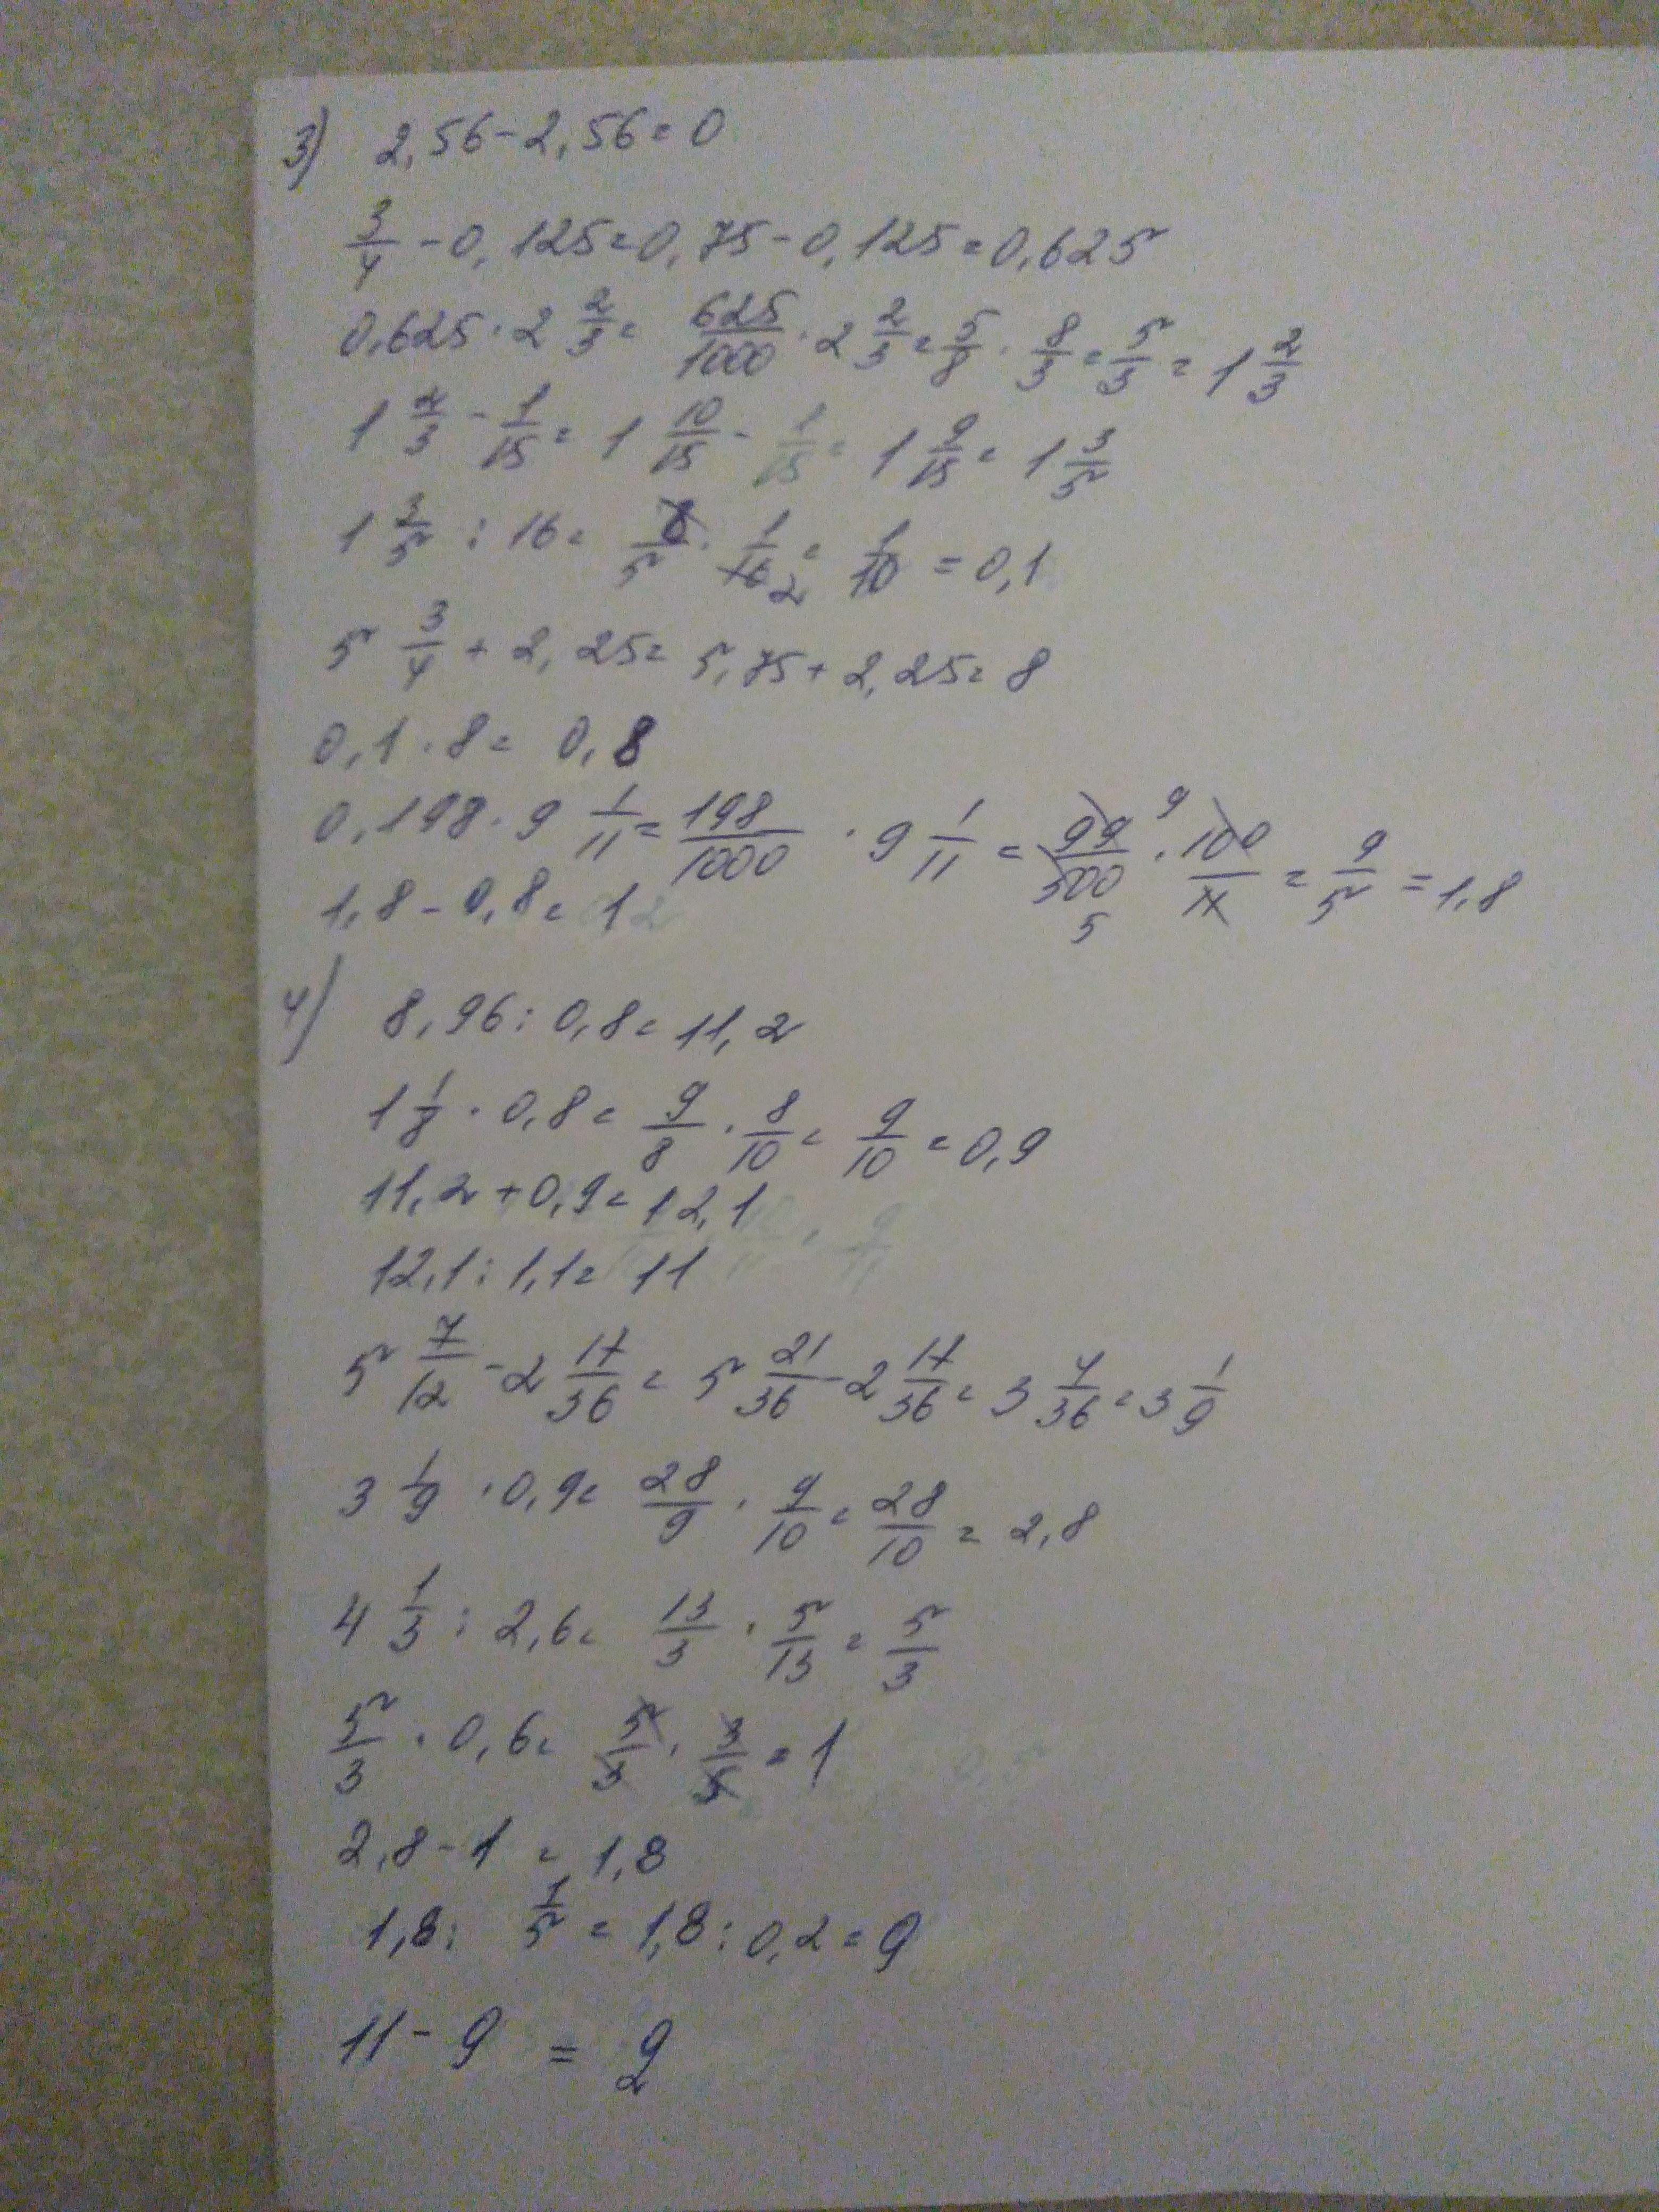 3) 2,56 - 2,56 = 0
3/4 - 0,125 = 0,75 - 0,125 = 0,625
0,625 · 2 2/3 = 625/1000 · 2 2/3 = 5/8 · 8/3 = 5/3 = 1 2/3
1 2/3 - 1/15 = 1 10/15 - 1/15 = 1 9/15 = 1 3/5
1 3/5 : 16 = 8/5 · 1/16 2 = 1/10 = 0,1
5 3/4 + 2,25 = 5,75 + 2,25 = 8
0,1 · 8 = 0,8
0,198 · 9 1/11 = 198/1000 · 9 1/11 = 99 9/500 5 · 100/11 = 9/5 = 1,8
1,8 - 0,8 = 1
4) 8,96 : 0,8 = 11,2
1 1/8 · 0,8 = 9/8 · 8/10 = 9/10 = 0,9
11,2 + 0,9 = 12,1
12,1 : 1,1 = 11
5 7/12 - 2 17/36 = 5 21/36 - 2 17/36 = 3 4/36 = 3 1/9
3 1/9 · 0,9 = 28/9 · 9/10 = 28/10 = 2,8
4 1/3 : 2,6 = 13/3 · 5/13 = 5/3
5/3 · 0,6 = 5/3 · 3/5 = 1
2,8 - 1 = 1,8
1,8 : 1/5 = 1,8 : 0,2 = 9
11 - 9 = 2